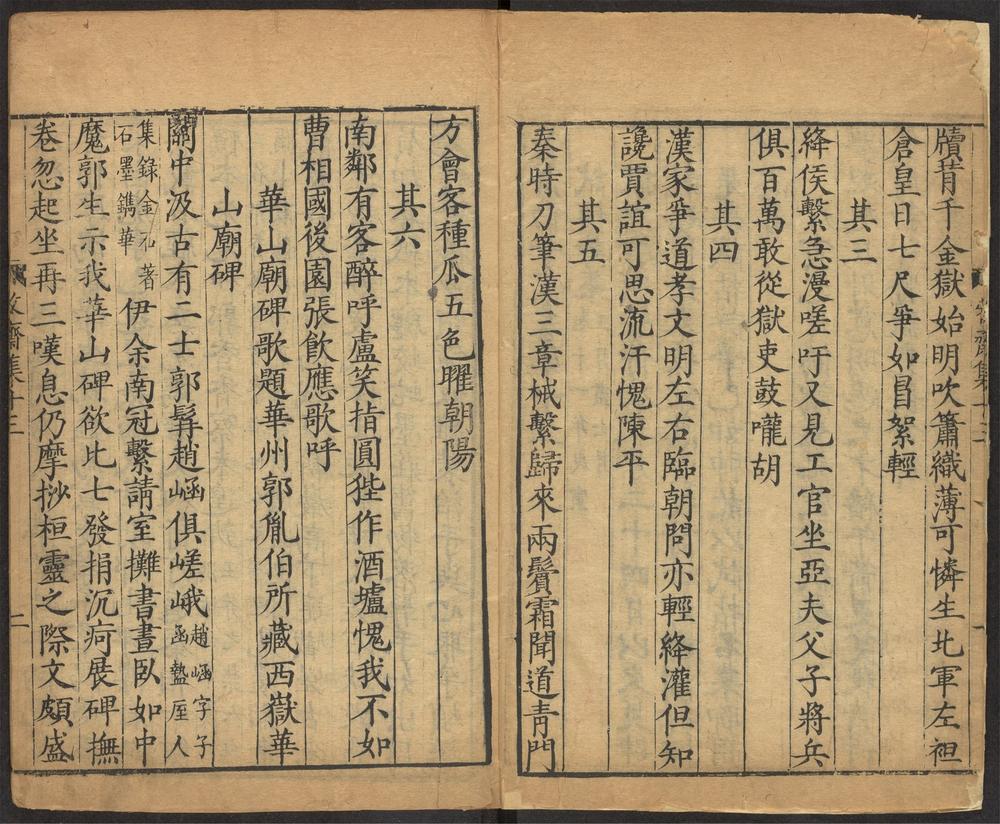 牘昔千金獄始明吹簫織薄可憐生北軍左袒
倉皇日七尺爭如冒絮輕
其三
絳侯繫急漫嗟吁又見工官坐亞夫父子將兵
俱百萬敢從獄吏鼓嚨胡
其四
漢家爭道孝文明左右臨朝問亦輕絳灌但知
讒賈誼可思流汗愧陳平
其五
秦時刀筆漢三章械繫歸來兩鬢霜聞道青門
齋集十三
一
方會客種瓜五色曜朝陽
其六
南鄰有客醉呼盧笑指圓狴作酒壚愧我不如
曹相國後園張飲應歌呼
華山廟碑歌題華州郭胤伯所藏西嶽華
山廟碑
關中汲古有二士郭髯趙崡俱嵯峨趙崡字子
函盩厔人
集錄金石著
石墨鐫華伊余南冠繫請室攤書晝臥如中
魔郭生示我華山碑欲比七發捐沉疴展碑撫
卷忽起坐再三嘆息仍摩挱桓靈之際文頗盛
牧齋集十三
二